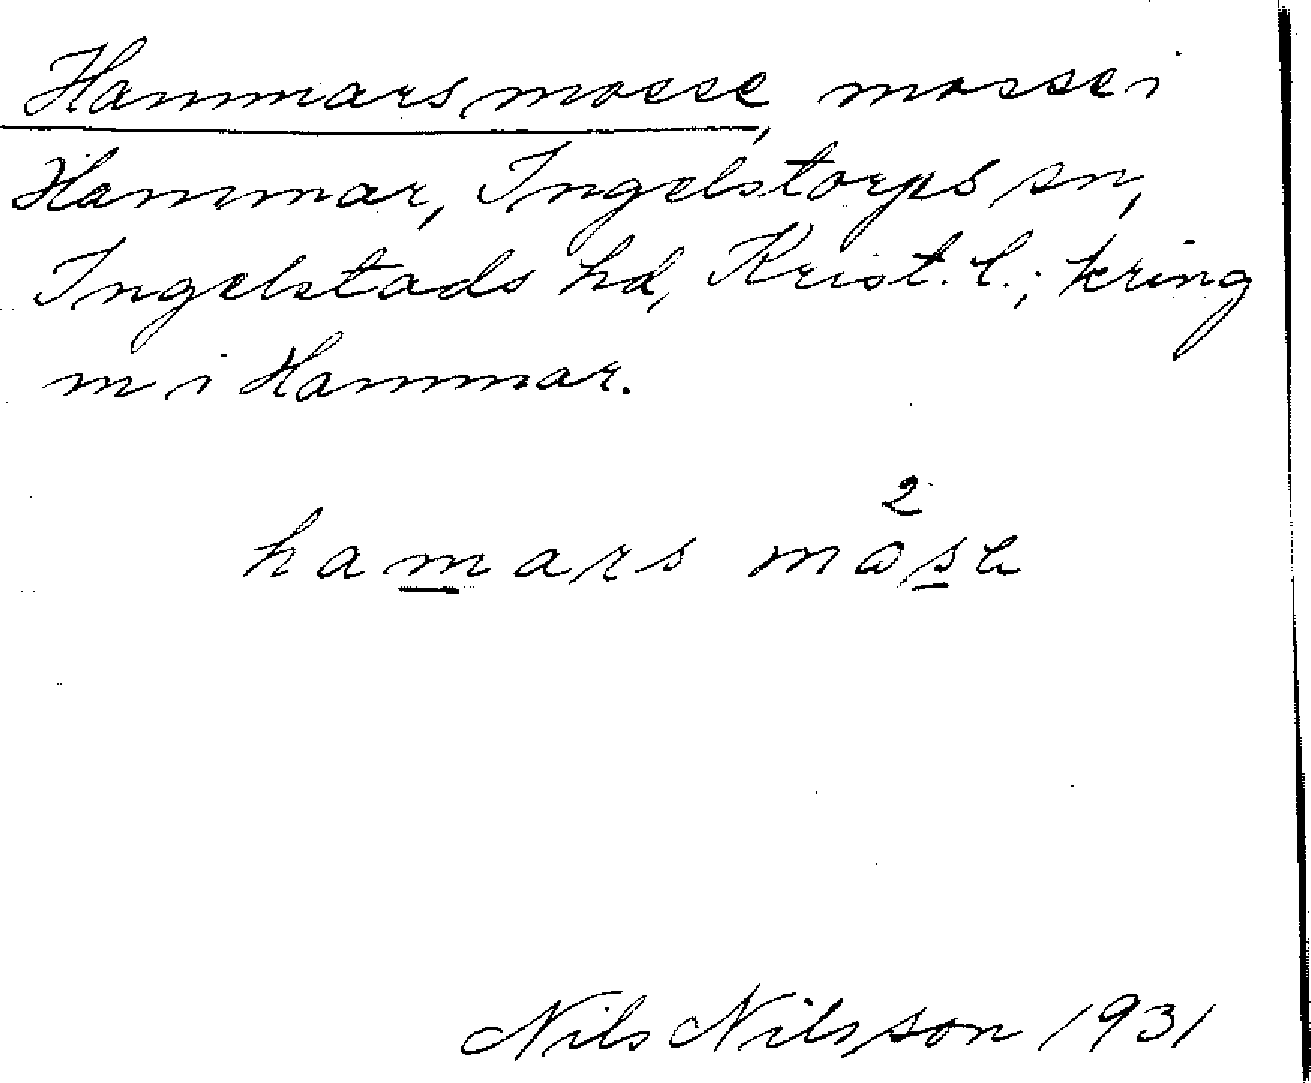 Hammarsmosse, mosse i
Hammar, Ingelstorps sn,
Ingelstads hd, Krist. l.; kring
m i Hammar.
2
hamars måse
Nils Nilsson 1931